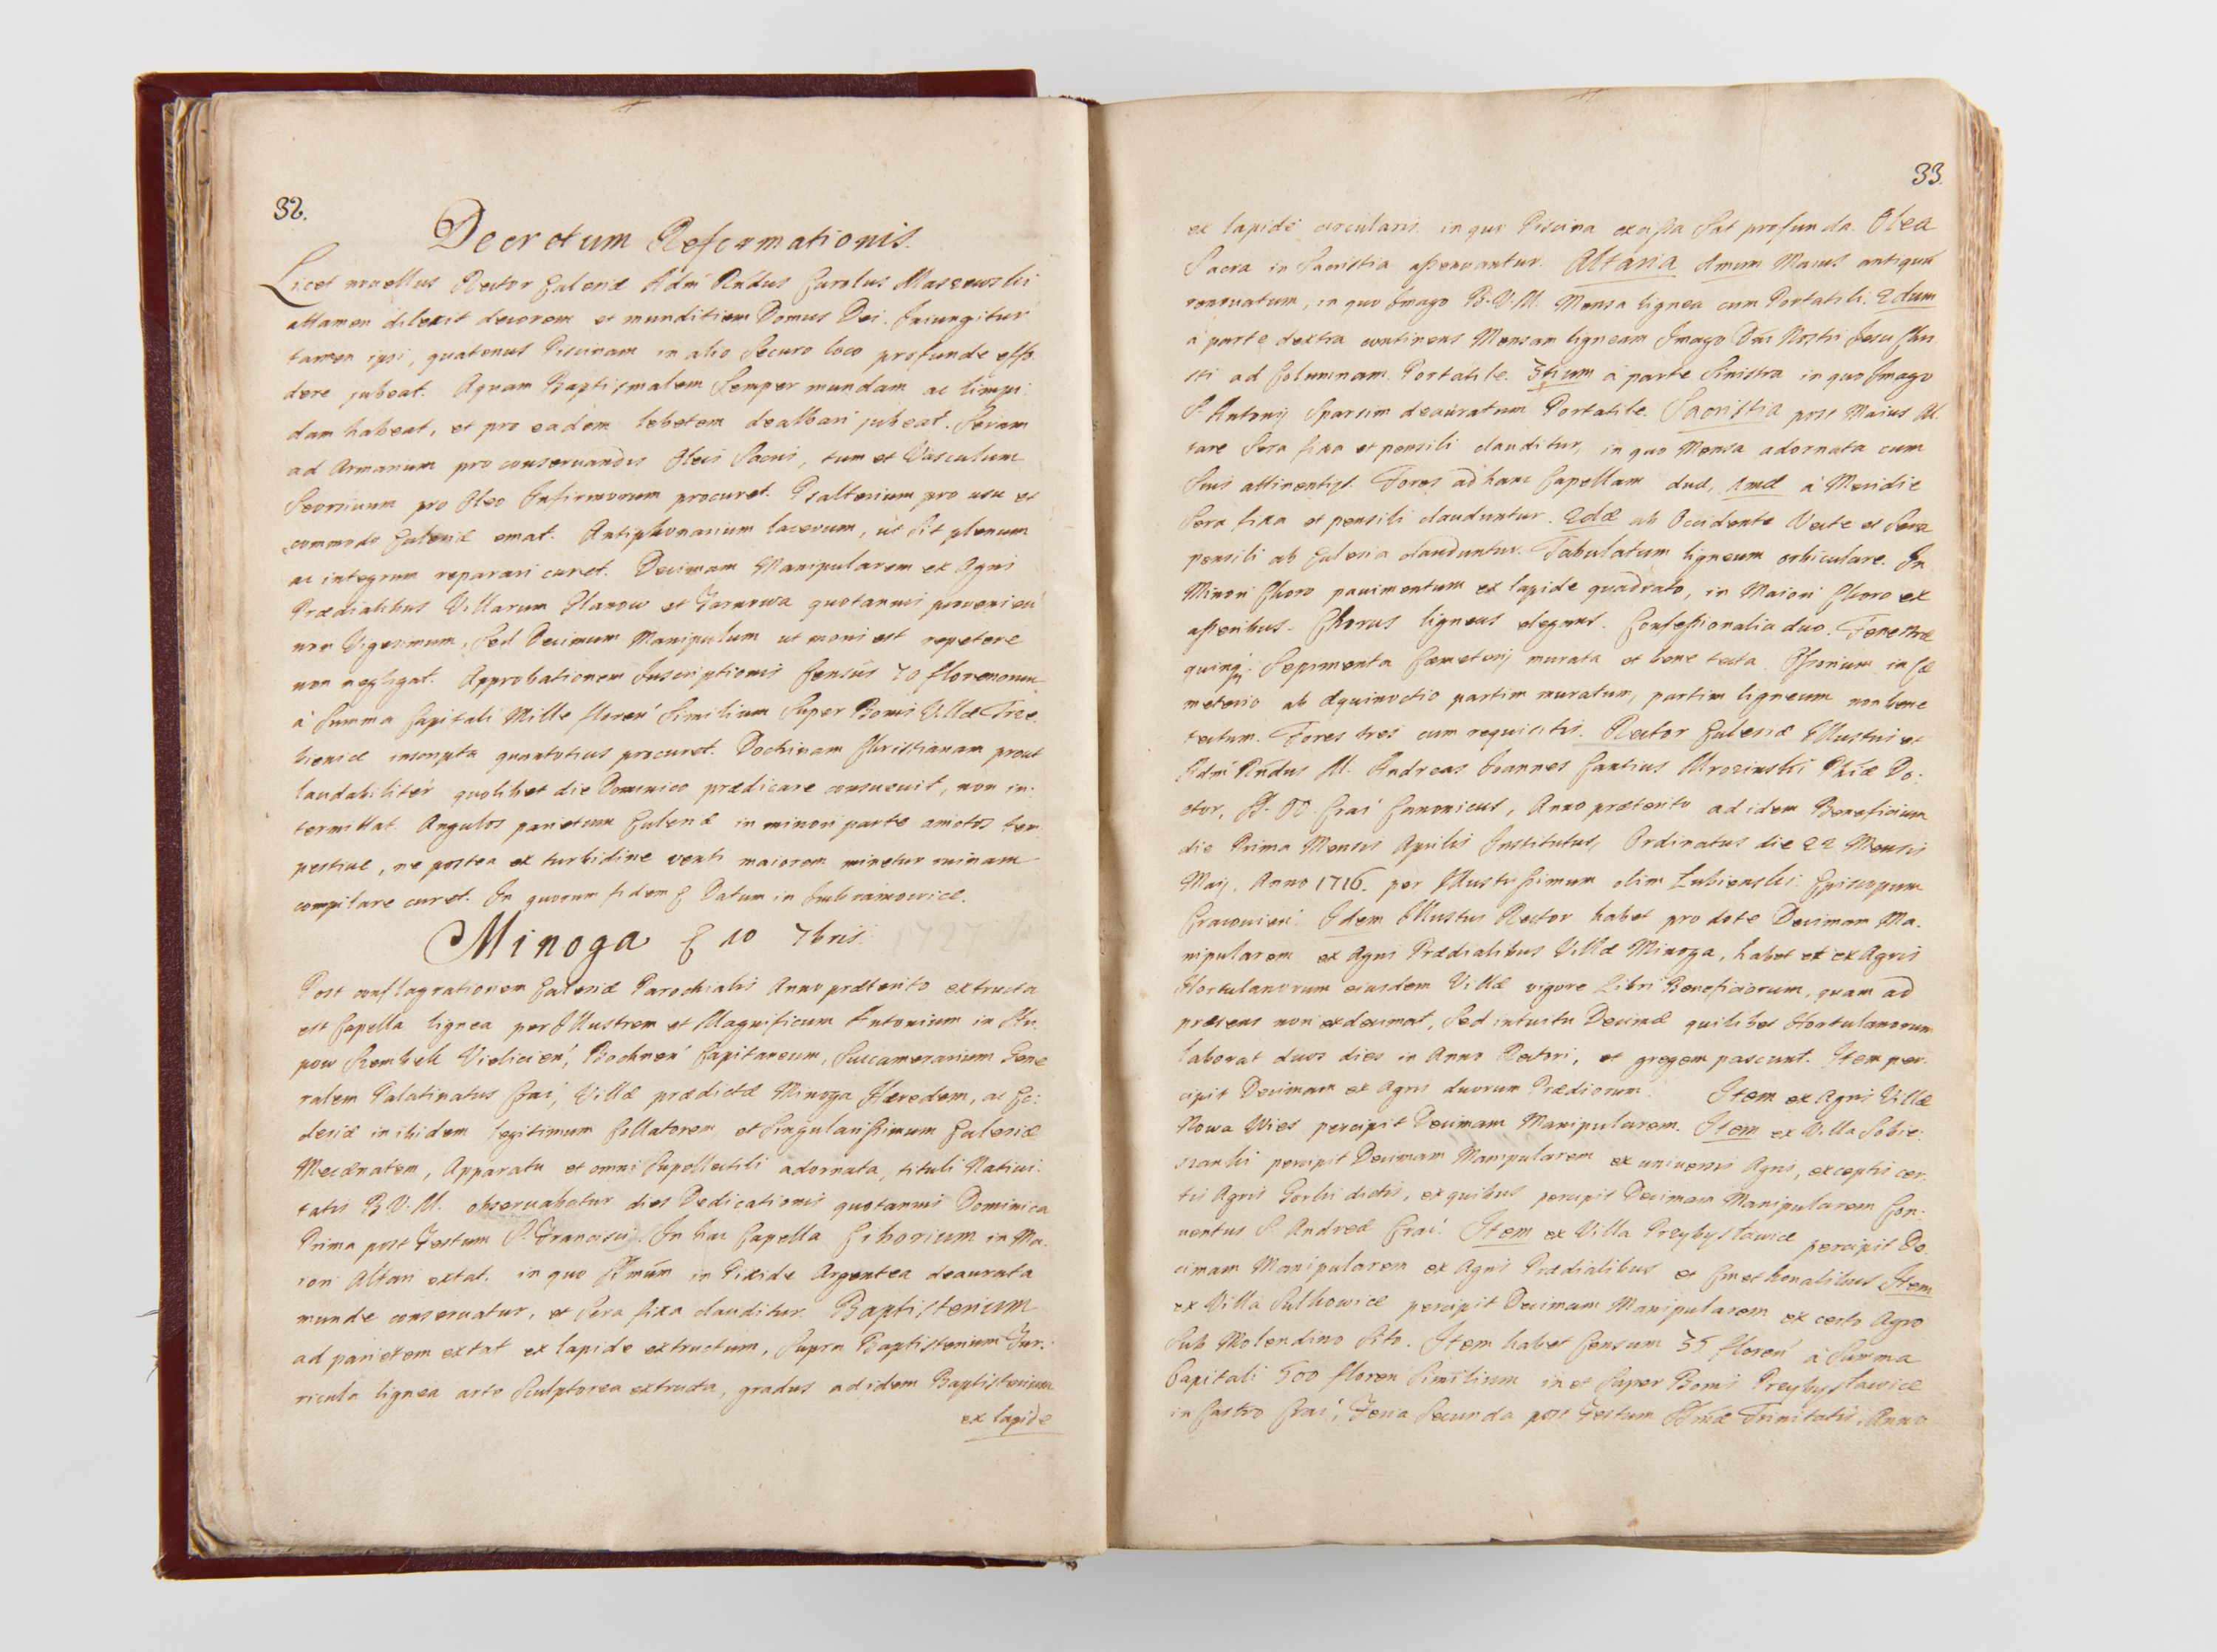 32.
Decretum Reformationis.
Licet nouellus Rector Eclesiæ Adm Rndus Carolus Maszewski
attamen dilexit decorem et munditiem Domus Dei. Iniungitur
tamen ipsi, quatenus Piscinam in alio Securo loco profunde effo
dere jubeat. Aquam Baptismalem Semper mundam ac limpi
dam habeat, et pro eadem lebetem dealbari jubeat. Seram
ad Armarium pro conseruandis Oleis Sacris, tum et Vasculum
Seorsiuum pro Oleo Infirmorum procuret. Psalterium pro usu et
commodo Eclesiæ emat. Antiphonarium lacerum, ut Sit plenum
ac integrum reparari curet. Decimam Manipularem ex Agris
Prædialibus Villarum Glanow et Tarnowa quotannis prouenien
non Vigesimum, Sed Decimum Manipulum ut moris est repetere
non negligat. Approbationem Inscriptionis Census 70 florenorum
à Summa Capitali Mille floren Similium Super Bonis Villæ Trze
bienice inscripta quantotius procuret. Doctrinam Christianam prout
laudabiliter quolibet die Dominico prædicare consueuit, non in:
termittat. Angulos parietum Eclesiæ in minori parte amotos tem
pestiue, ne postea ex turbidine venti maiorem minetur ruinam
compilare curet. In quorum fidem Datum in Imbramowice.
Minoga 10 7bris.
Post conflagrationem Eclesiæ Parochialis Anno præterito extructa
est Capella lignea per Illustrem et Magnificum Antonium in Slu
pow Szembek Vielicien, Bochnen Capitaneum, Succamerarium Gene
ralem Palatinatus Crac, Villæ prædictæ Minoga Hæredem, ac Ec:
clesiæ in ibidem legitimum Collatorem, et Singularissimum Eclesiæ
Mecænatem, Apparatu et omni Supellectili adornata, tituli Natiui
tatis B.V.M. obseruabatur dies Dedicationis quotannis Dominica
Prima post Festum S. Francisci. In hac Capella Ciborium in Ma
iori Altari extat. in quo SSmum in Pixide Argentea deaurata
munde conseruatur, et Sera fixa clauditur. Baptisterium
ad parietem extat ex lapide extructum, Supra Baptisterium Tur:
ricula lignea arte Sculptorea extructa, gradus ad idem Baptisterium
ex lapide
33.
ex lapide circularis. in quo Piscina excissa Sat profunda. Olea
Sacra in Sacristia asseruantur. Altaria Amum Maius antiquu
renouatum, in quo Imago B.V.M. Mensa lignea cum Portatili. 2dum
à parte dextra continens Mensam ligneam Imago Dni Nostri Jesu Chri
sti ad Columnam. Portatile. 3tium à parte Sinistra in quo Imago
S. Antonij Sparsim deauratum Portatile. Sacristia post Maius Al.
tare Sera fixa et pensili clauditur, in quo Mensa adornata cum
Suis attinentijs. Fores ad hanc Capellam duæ, Amæ à Meridie
Sera fixa et pensili clauduntur. 2dæ ab Occidente Vecte et Sera
pensili ab Eclesia clauduntur. Tabulatum ligneum orbiculare. In
Minori Choro pauimentum ex lapide quadrato, in Maiori Choro ex
asseribus. Chorus ligneus elegans. Confessionalia duo. Fenestræ
quinq. Sepimenta Cæmeterij murata et bene tecta. Ossorium in Cæ
meterio ab Æquinoctio partim muratum, partim ligneum non bene
tectum. Fores tres cum requisitis. Rector Eclesiæ Illustris et
Adm Rndus M. Andreas Joannes Cantius Mrozinski Phiæ Do:
ctor, Crac Canonicus, Anno præterito ad idem Beneficium
die Prima Mensis Aprilis Institutus, Ordinatus die 22 Mensis
Maij. Anno 1716. per Illustrissimum olim Lubienski Episcopum
Cracouien. Idem Illustris Rector habet pro dote Decimam Ma.
nipularem ex Agris Prædialibus Villæ Minoga, habet et ex Agris
Hortulanorum eiusdem Villæ vigore Libri Beneficiorum, quam ad
præsens non exdecimat, Sed intuitu Decimæ quilibet Hortulanorum
laborat duos dies in Anno Rectori, et gregem pascunt. Item per:
cipit Decimam ex Agris duorum Prædiorum. Item ex Agris Villæ
Nowa Wies percipit Decimam Manipularem. Item ex Villa Sobie:
sianki percipit Decimam Manipularem ex uniuersis Agris, exceptis cer:
tis Agris Gorki dictis, ex quibus percipit Decimam Manipularem Con:
uentus S. Andreæ Crac. Item ex Villa Przybyslawice percipit De
cimam Manipularem ex Agris Prædialibus et Cmethonalibus Item
ex Villa Sulkowice percipit Decimam Manipularem ex certo Agro
Sub Molendino Sito. Item habet Censum 35 floren à Summa
Capitali 500 floren Similium in et Super Bonis Przybyslawice
in Castro Crac, Feria Secunda post Festum SSmæ Trinitatis, Anno